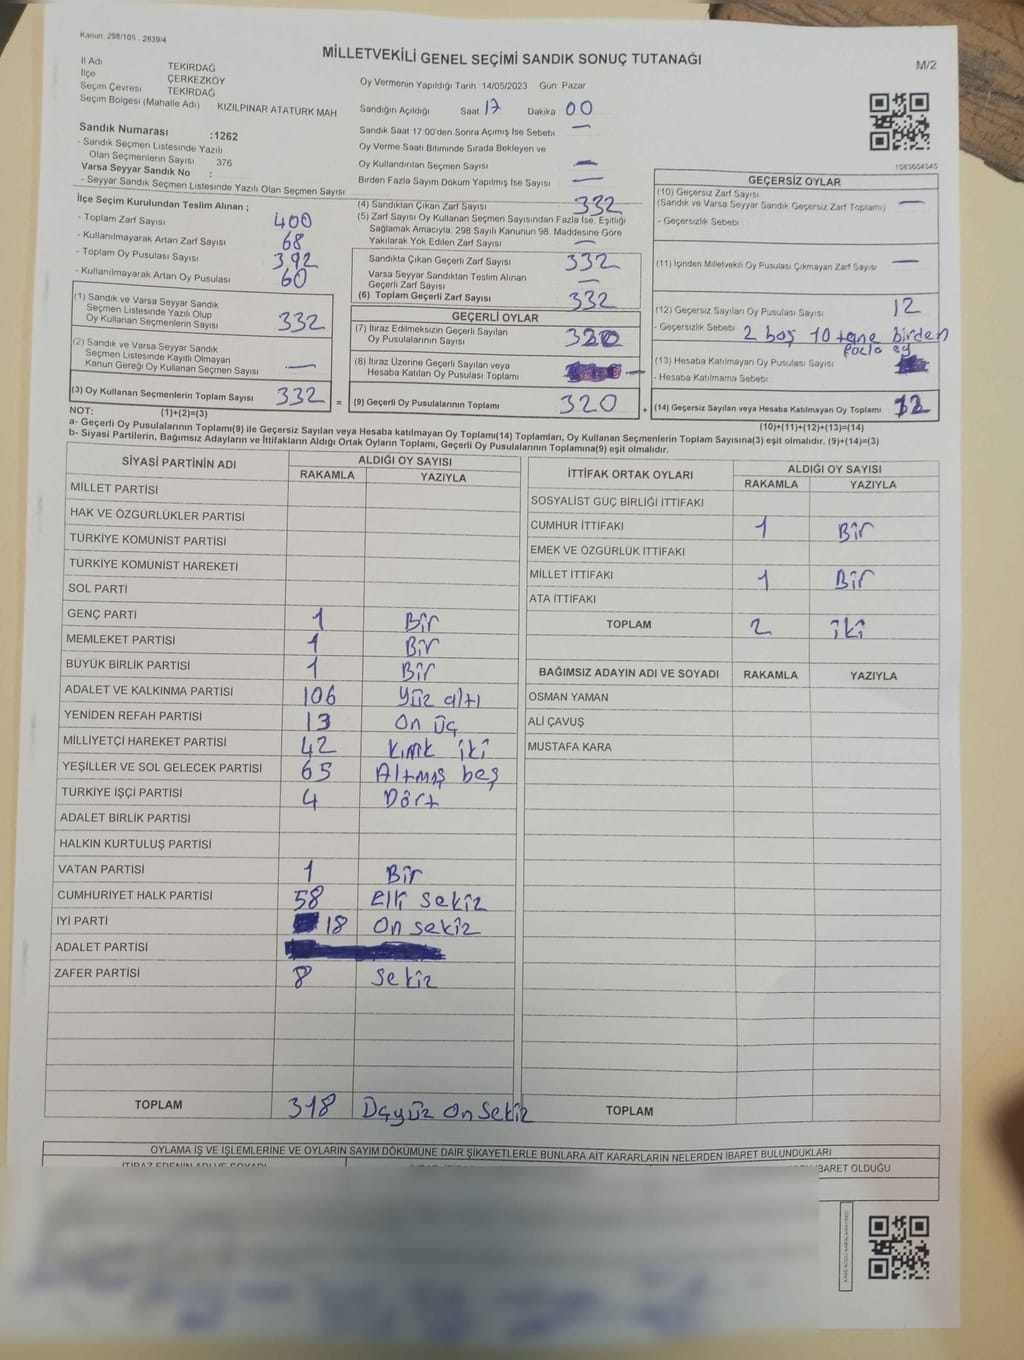 Kanun: 298/105 , 2839/4
MİLLETVEKİLİ GENEL SEÇİMİ SANDIK SONUÇ TUTANAĞI
M/2
İl Adı TEKİRDAĞ
İlçe ÇERKEZKÖY
Seçim Çevresi TEKİRDAĞ
Seçim Bölgesi (Mahalle Adı) KIZILPINAR ATATÜRK MAH
Sandık Numarası :1262
- Sandık Seçmen Listesinde Yazılı
Olan Seçmenlerin Sayısı 376
Varsa Seyyar Sandık No :
- Seyyar Sandık Seçmen Listesinde Yazılı Olan Seçmen Sayısı
Oy Vermenin Yapıldığı Tarih 14/05/2023 Gün: Pazar
Sandığın Açıldığı Saat 17 Dakika 00
Sandık Saat 17:00'den Sonra Açılmış İse Sebebi —
Oy Verme Saati Bitiminde Sırada Bekleyen ve
Oy Kullandırılan Seçmen Sayısı —
Birden Fazla Sayım Döküm Yapılmış İse Sayısı —
1083604545
İlçe Seçim Kurulundan Teslim Alınan ;
- Toplam Zarf Sayısı 400
- Kullanılmayarak Artan Zarf Sayısı 68
- Toplam Oy Pusulası Sayısı 392
- Kullanılmayarak Artan Oy Pusulası 60
(1) Sandık ve Varsa Seyyar Sandık
Seçmen Listesinde Yazılı Olup
Oy Kullanan Seçmenlerin Sayısı 332
(2) Sandık ve Varsa Seyyar Sandık
Seçmen Listesinde Kayıtlı Olmayan
Kanun Gereği Oy Kullanan Seçmen Sayısı —
(3) Oy Kullanan Seçmenlerin Toplam Sayısı 332 =
(4) Sandıktan Çıkan Zarf Sayısı 332
(5) Zarf Sayısı Oy Kullanan Seçmen Sayısından Fazla İse, Eşitliği
Sağlamak Amacıyla, 298 Sayılı Kanunun 98. Maddesine Göre
Yakılarak Yok Edilen Zarf Sayısı —
Sandıkta Çıkan Geçerli Zarf Sayısı 332
Varsa Seyyar Sandıktan Teslim Alınan
Geçerli Zarf Sayısı —
(6) Toplam Geçerli Zarf Sayısı 332
GEÇERLİ OYLAR
(7) İtiraz Edilmeksizin Geçerli Sayılan
Oy Pusulalarının Sayısı 320
(8) İtiraz Üzerine Geçerli Sayılan veya
Hesaba Katılan Oy Pusulası Toplamı —
(9) Geçerli Oy Pusulalarının Toplamı 320 +
GEÇERSİZ OYLAR
(10) Geçersiz Zarf Sayısı
(Sandık ve Varsa Seyyar Sandık Geçersiz Zarf Toplamı) —
- Geçersizlik Sebebi
(11) İçinden Milletvekili Oy Pusulası Çıkmayan Zarf Sayısı —
(12) Geçersiz Sayılan Oy Pusulası Sayısı 12
- Geçersizlik Sebebi 2 boş 10 tane birden
fazla oy
(13) Hesaba Katılmayan Oy Pusulası Sayısı
- Hesaba Katılmama Sebebi
(14) Geçersiz Sayılan veya Hesaba Katılmayan Oy Toplamı 12
NOT: (1)+(2)=(3) (10)+(11)+(12)+(13)=(14)
a- Geçerli Oy Pusulalarının Toplamı(9) ile Geçersiz Sayılan veya Hesaba katılmayan Oy Toplamı(14) Toplamları, Oy Kullanan Seçmenlerin Toplam Sayısına(3) eşit olmalıdır. (9)+(14)=(3)
b- Siyasi Partilerin, Bağımsız Adayların ve İttifakların Aldığı Ortak Oyların Toplamı, Geçerli Oy Pusulalarının Toplamına(9) eşit olmalıdır.
SİYASİ PARTİNİN ADI ALDIĞI OY SAYISI
RAKAMLA YAZIYLA
MİLLET PARTİSİ
HAK VE ÖZGÜRLÜKLER PARTİSİ
TÜRKİYE KOMÜNİST PARTİSİ
TÜRKİYE KOMÜNİST HAREKETİ
SOL PARTİ
GENÇ PARTİ 1 Bir
MEMLEKET PARTİSİ 1 Bir
BÜYÜK BİRLİK PARTİSİ 1 Bir
ADALET VE KALKINMA PARTİSİ 106 Yüz altı
YENİDEN REFAH PARTİSİ 13 On üç
MİLLİYETÇİ HAREKET PARTİSİ 42 Kırk iki
YEŞİLLER VE SOL GELECEK PARTİSİ 65 Altmış beş
TÜRKİYE İŞÇİ PARTİSİ 4 Dört
ADALET BİRLİK PARTİSİ
HALKIN KURTULUŞ PARTİSİ
VATAN PARTİSİ 1 Bir
CUMHURİYET HALK PARTİSİ 58 Elli sekiz
İYİ PARTİ 18 On sekiz
ADALET PARTİSİ
ZAFER PARTİSİ 8 Sekiz
TOPLAM 318 Üçyüz On Sekiz
İTTİFAK ORTAK OYLARI ALDIĞI OY SAYISI
RAKAMLA YAZIYLA
SOSYALİST GÜÇ BİRLİĞİ İTTİFAKI
CUMHUR İTTİFAKI 1 Bir
EMEK VE ÖZGÜRLÜK İTTİFAKI
MİLLET İTTİFAKI 1 Bir
ATA İTTİFAKI
TOPLAM 2 iki
BAĞIMSIZ ADAYIN ADI VE SOYADI RAKAMLA YAZIYLA
OSMAN YAMAN
ALİ ÇAVUŞ
MUSTAFA KARA
TOPLAM
OYLAMA İŞ VE İŞLEMLERİNE VE OYLARIN SAYIM DÖKÜMÜNE DAİR ŞİKAYETLERLE BUNLARA AİT KARARLARIN NELERDEN İBARET BULUNDUKLARI
BARET OLDUĞU